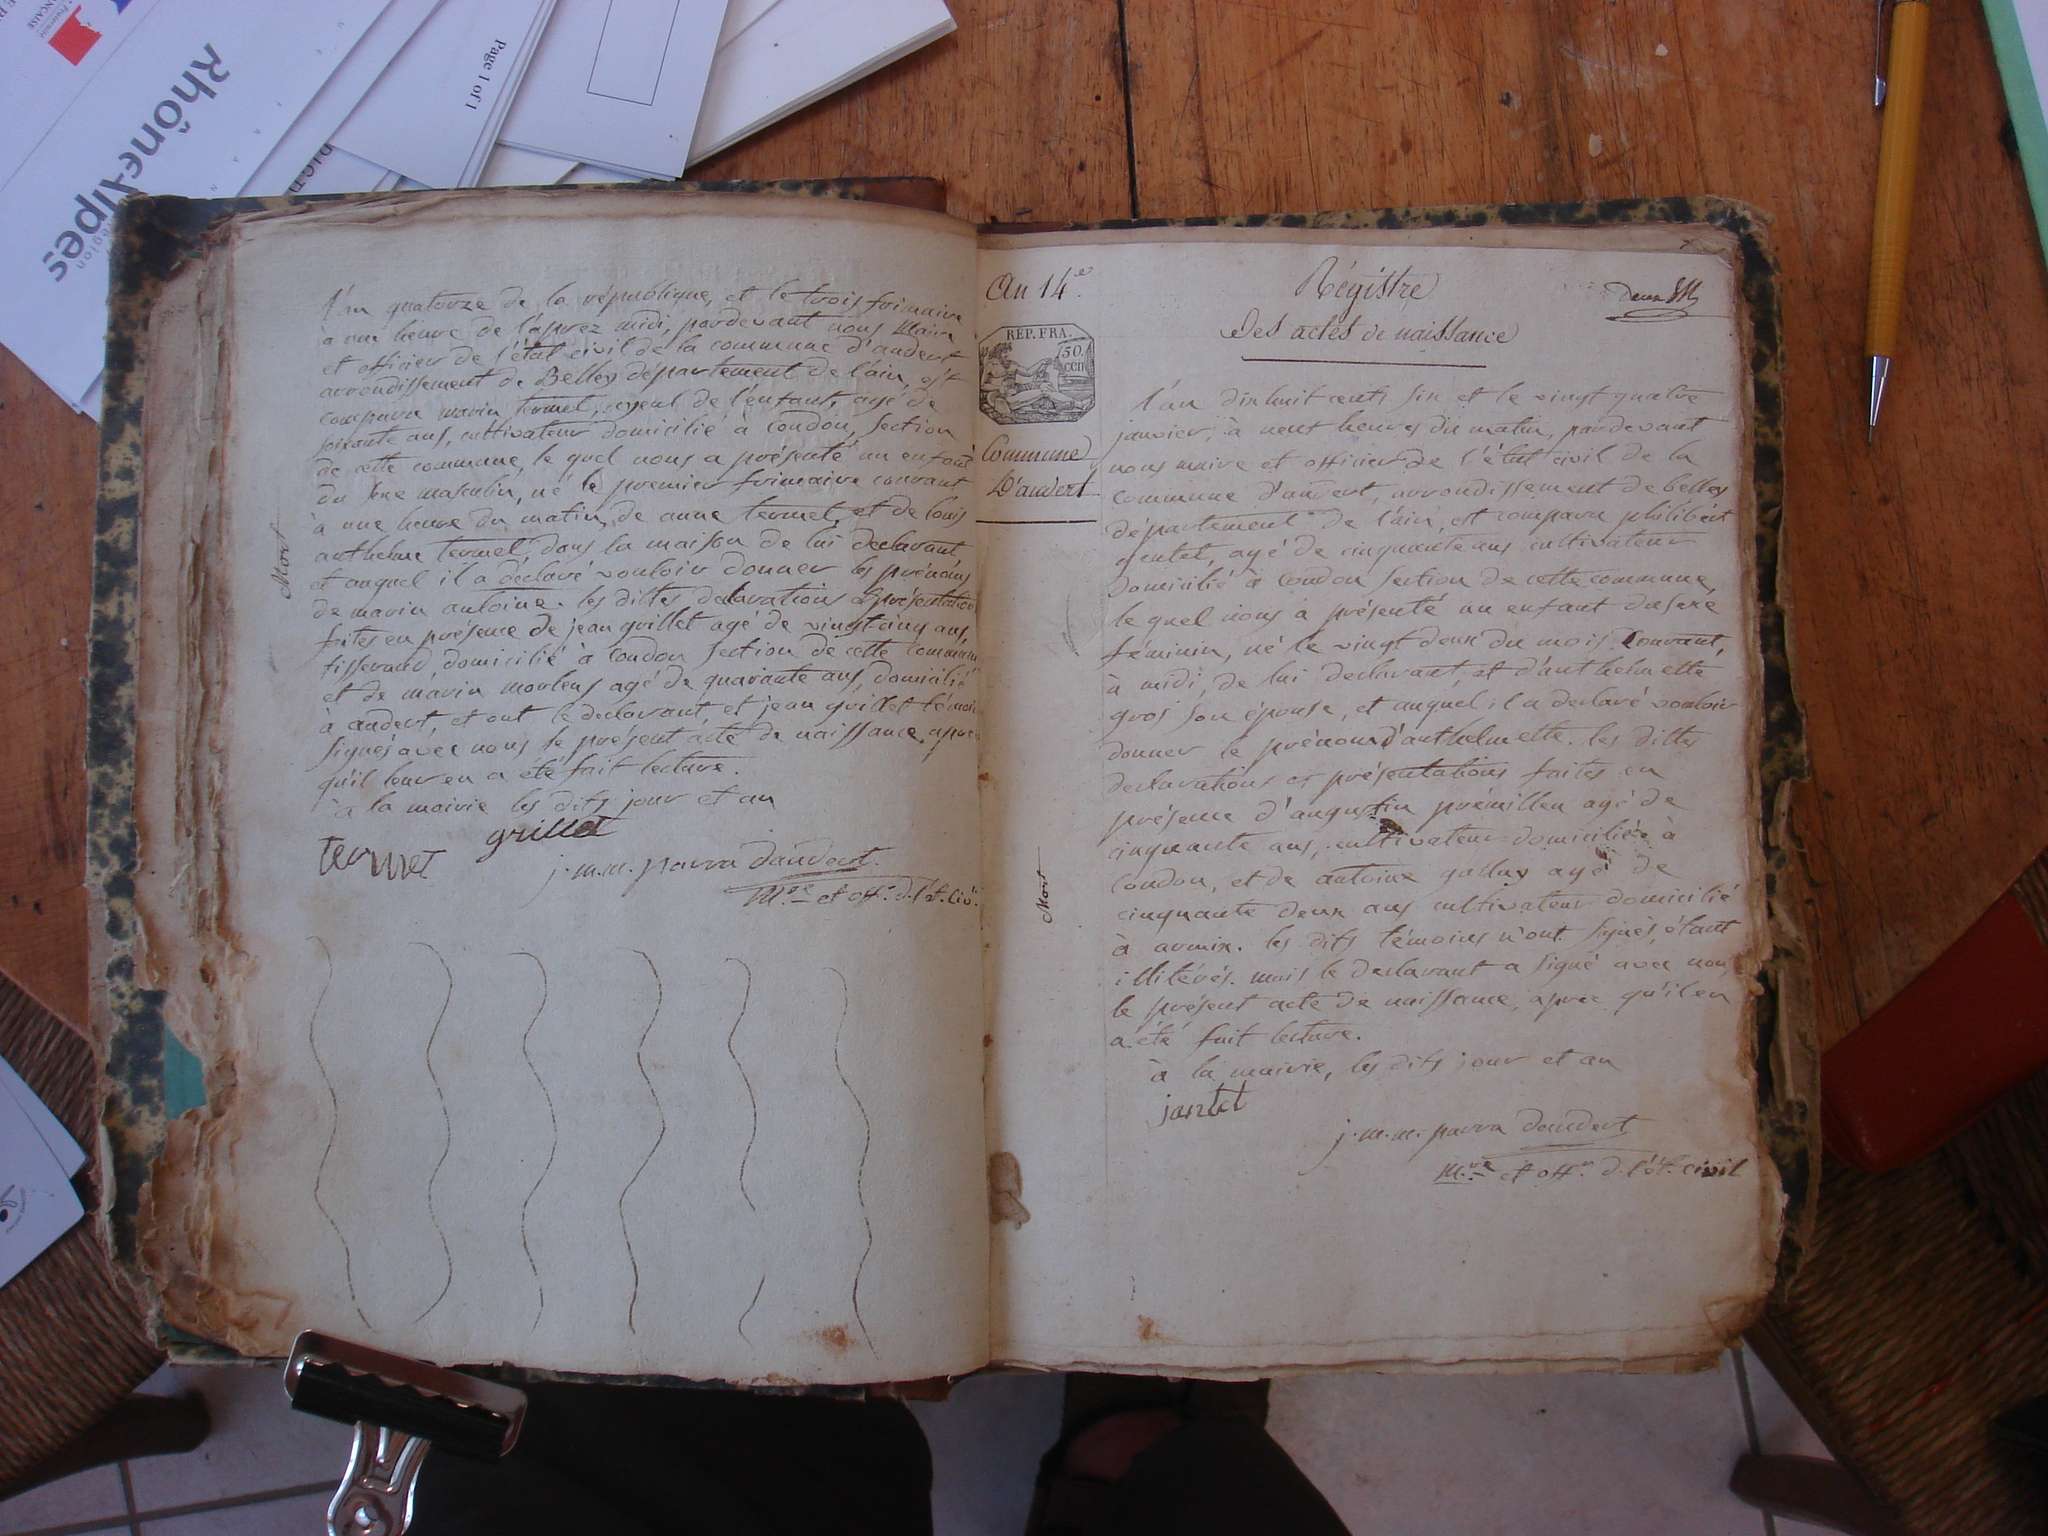 Rhône-Alpes
Région
Page 1 of 1
l'an quatorze de la république, et le trois frimaire
à une heure de l'aprez midi, pardevant nous Maire
et officier de l'état civil de la commune d'andert
arrondissement de Belley département de l'ain, est
comparu marin termet, ayeul de l'enfant, agé de
soixante ans, cultivateur domicilié à Condon, section
de cette commune, le quel nous a présenté un enfant
du sexe masculin, né le premier frimaire courant
à une heure du matin, de anne termet, et de louis
anthelme termet, dans la maison de lui declarant,
et auquel il a déclaré vouloir donner les prénoms
de marin antoine. les dittes declarations et présentation
faites en présence de jean grillet agé de vingt-cinq ans,
tisserand, domicilié à Condon section de cette commune
et de marin agé de quarante ans, domicilié
à andert, et ont le declarant, et jean grillet témoin
signés avec nous le present acte de naissance, aprez
qu'il leur en a été fait lecture.
à la mairie les dits jour et an
Mort
termet
grillet
j.m.m. parra d'andert.
M.re et off.r d.l'ét.civ.
An 14.e
REP. FRA.
50.
CEN
Commune
D'andert
Régistre
Des actes de naissance
deux
l'an dixhuit cents six et le vingt quatre
janvier, à neuf heures du matin, pardevant
nous maire et officier de l'état civil de la
commune d'andert, arrondissement de belley
département de l'ain, est comparu philibert
gentet, agé de cinquante ans cultivateur
domicilié à Condon section de cette commune,
le quel nous à présenté un enfant du sexe
féminin, né le vingt deux du mois Courant,
à midi, de lui declarant, et d'anthelmette
gros son épouse, et auquel il a declaré vouloir
donner le prénom d'anthelmette. les dittes
declarations et présentations faites en
présence d'augustin prémillieu agé de
cinquante ans, cultivateur domicilié à
Condon, et de antoine gallay agé de
cinquante deux ans cultivateur domicilié
à armix. les dits témoins n'ont signés, étant
illitérés. mais le declarant a signé avec nous
le présent acte de naissance, aprez qu'il en
a été fait lecture.
à la mairie, les dits jour et an
Mort
jantet
j.m.m. parra d'andert
M.re et off.r d.l'ét. civil